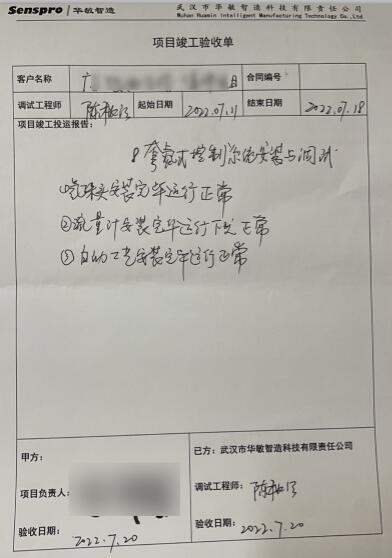 Senspro 华敏智造
武汉市华敏智造科技有限责任公司
Wuhan Huamin Intelligent Manufacturing Technology Co., Ltd.
项目竣工验收单
客户名称 广 日 合同编号
调试工程师 陈 起始日期 2022.07.11 结束日期 2022.07.18
项目竣工投运报告:
8套 式控制系统安装与调试
安装完毕运行正常
②流量计安装完毕运行 正常
③自动工艺安装完毕运行正常
甲方:
项目负责人:
验收日期: 2022.7.20
已方:武汉市华敏智造科技有限责任公司
调试工程师: 陈
验收日期: 2022.7.20